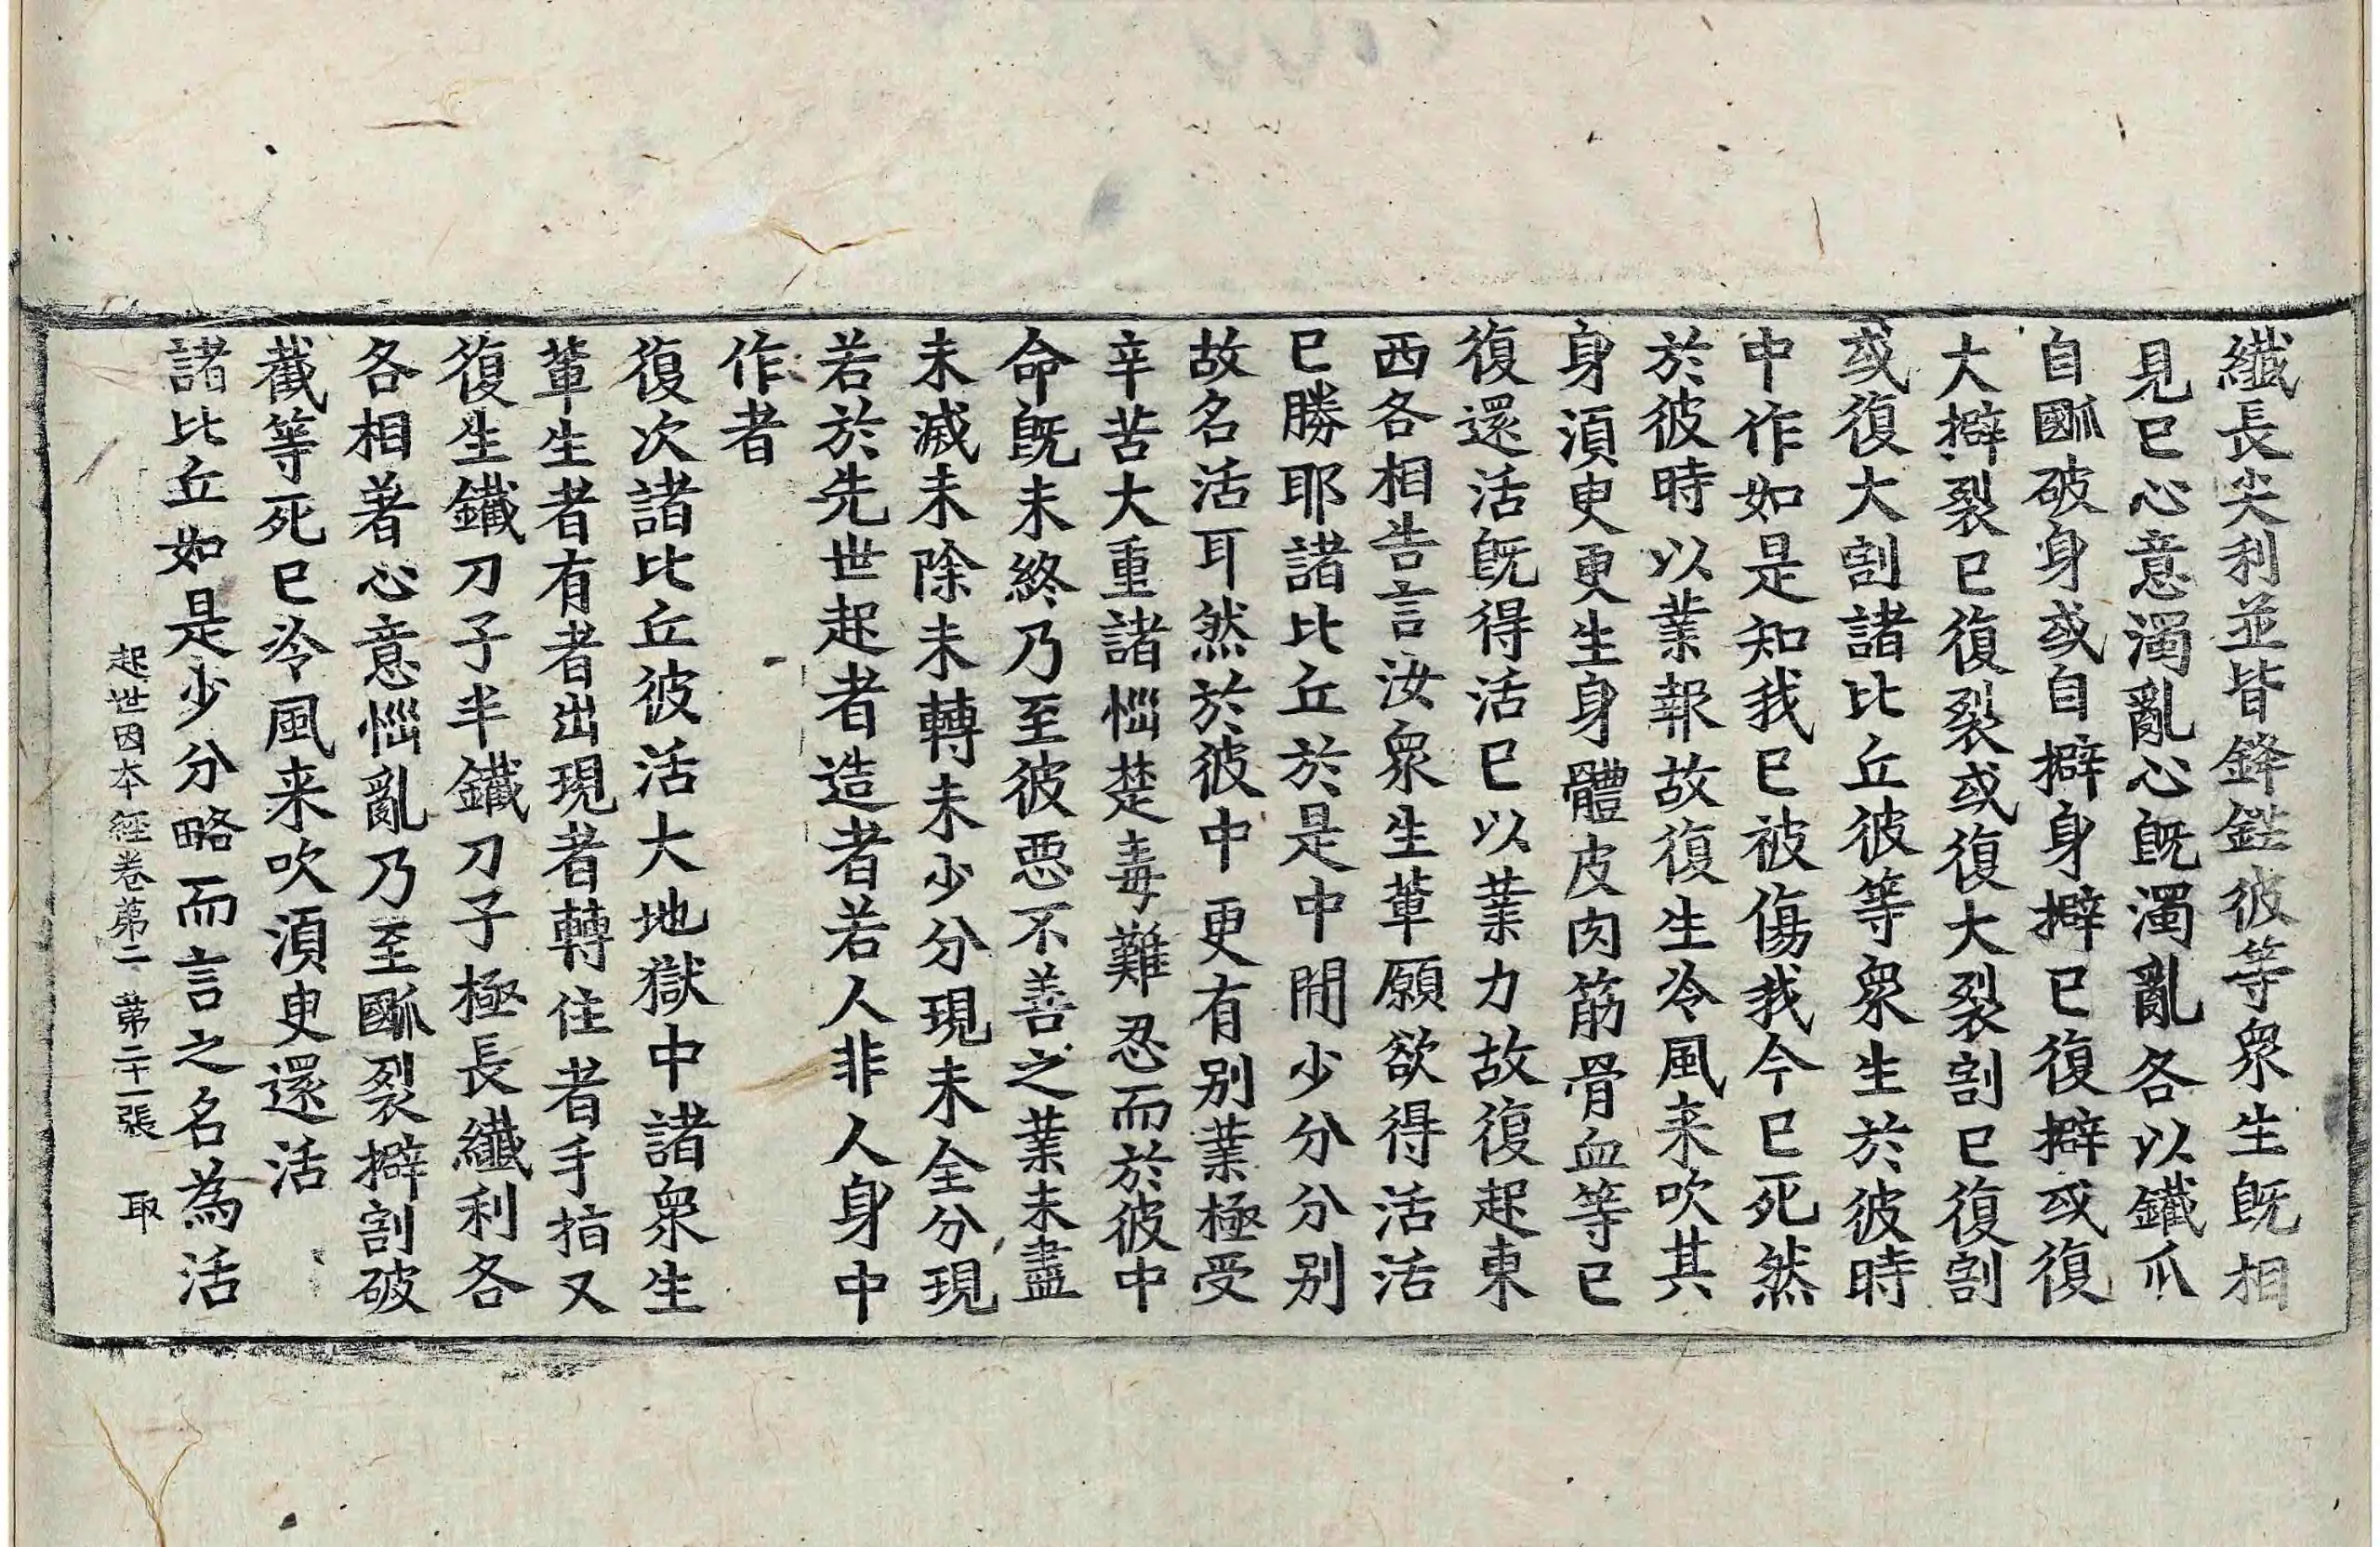 纎長尖利並皆鋒鋩彼等衆生旣相
見已心意濁亂心旣濁亂各以鐵爪
自𠜾破身或自擗身擗已復擗或復
大擗裂已復裂或復大裂割已復割
或復大割諸比丘彼等衆生於彼時
中作如是知我已被傷我今已死然
於彼時以業報故復生冷風来吹其
身湏㬰更生身體皮肉筋骨血等已
復還活旣得活已以業力故復起東
西各相告言汝衆生輩願欲得活活
已勝耶諸比丘於是中閒少分分别
故名活耳然於彼中更有别業極受
辛苦大重諸惱楚毒難忍而於彼中
命旣未終乃至彼惡不善之業未盡
未滅未除未轉未少分現未全分現
若於先世起者造者若人非人身中
作者
復次諸比丘彼活大地獄中諸衆生
輩生者有者出現者轉住者手指又
復生鐵刀子半鐵刀子極長纎利各
各相著心意惱亂乃至裂擗割破
截等死已冷風来吹湏㬰還活
諸比丘如是少分略而言之名為活
起世因本經卷第二 第二十一張 取